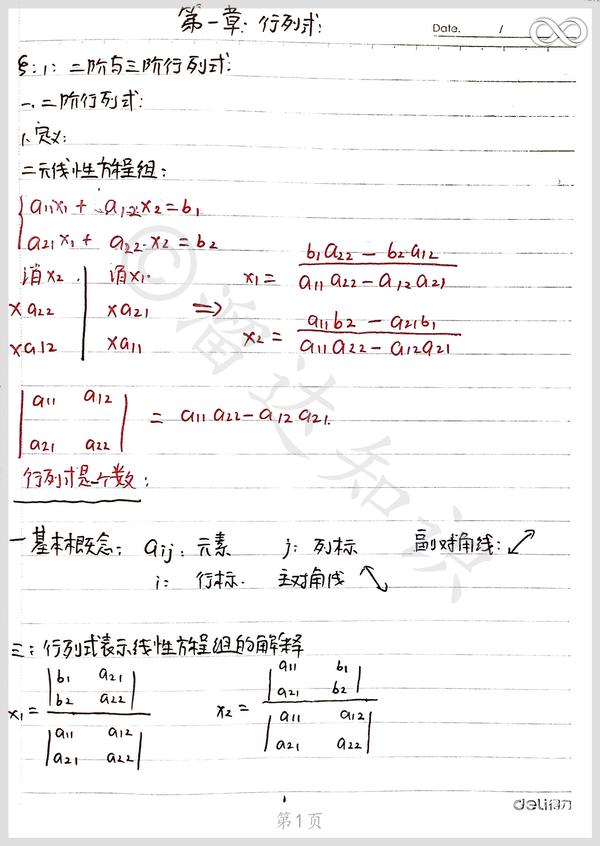 第一章: 行列式:
Date. /
§:1: 二阶与三阶行列式:
一.二阶行列式:
1.定义:
二元线性方程组:
a11x1 + a12x2 = b1
a21x1 + a22x2 = b2
消x2 消x1.
×a22 ×a21 ⇒ x1 = (b1a22 − b2a12) / (a11a22 − a12a21)
×a12 ×a11 x2 = (a11b2 − a21b1) / (a11a22 − a12a21)
|a11 a12|
|a21 a22| = a11a22 − a12a21.
行列式是一个数:
一基本概念: aij: 元素 j: 列标 副对角线: ↗
i: 行标. 主对角线 ↘
三: 行列式表示线性方程组的解释
x1 = |b1 a21| x2 = |a11 b1|
|b2 a22| |a21 b2|
|a11 a12| |a11 a12|
|a21 a22| |a21 a22|
deli得力
第1页
©溜达知识